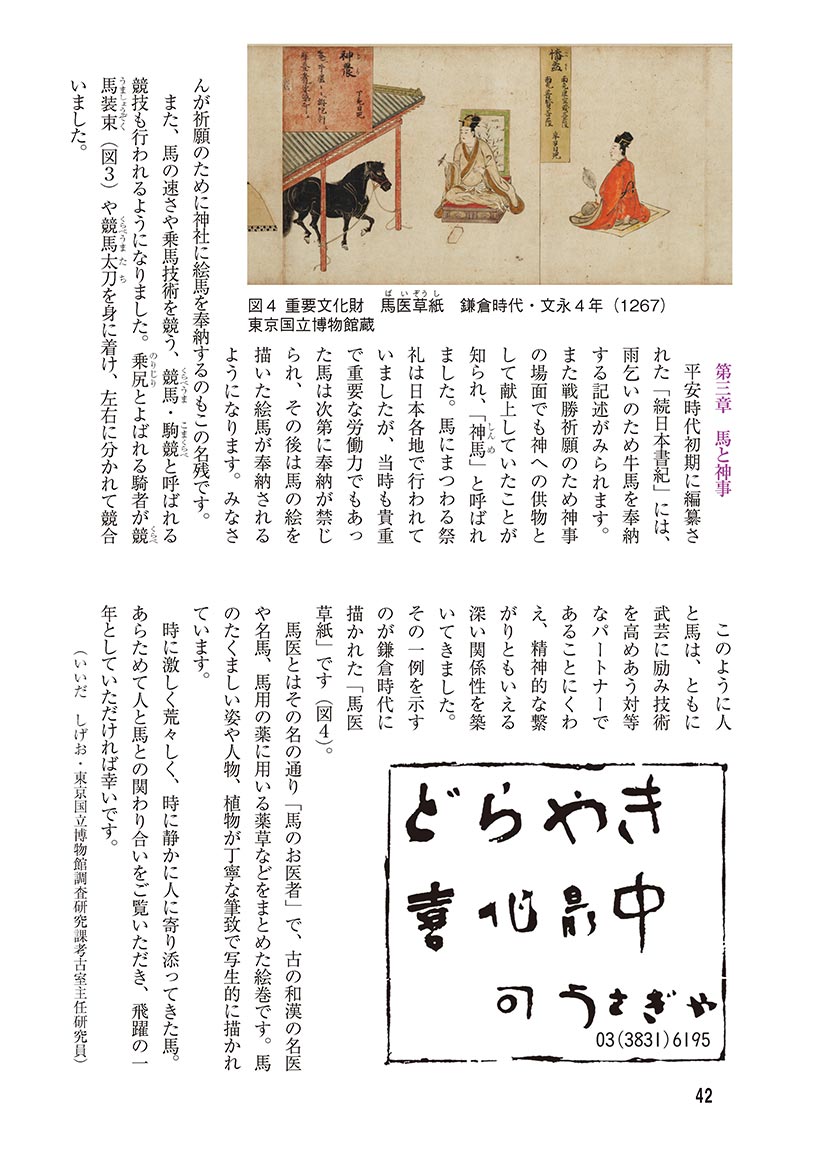 神農
図4 重要文化財　馬医草紙　鎌倉時代・文永4年（1267）
ばいぞうし
東京国立博物館蔵
第三章　馬と神事
平安時代初期に編纂さ
れた「続日本書紀」には、
雨乞いのため牛馬を奉納
する記述がみられます。
また戦勝祈願のため神事
の場面でも神への供物と
して献上していたことが
知られ、「神馬」と呼ばれ
しんめ
ました。馬にまつわる祭
礼は日本各地で行われて
いましたが、当時も貴重
で重要な労働力でもあっ
た馬は次第に奉納が禁じ
られ、その後は馬の絵を
描いた絵馬が奉納される
ようになります。みなさ
んが祈願のために神社に絵馬を奉納するのもこの名残です。
また、馬の速さや乗馬技術を競う、競馬・駒競と呼ばれる
くらべうま　こまくらべ
競技も行われるようになりました。乗尻とよばれる騎者が競
のりじり　くらべ
馬装束（図3）や競馬太刀を身に着け、左右に分かれて競合
うましょうぞく　くらべうまたち
いました。
このように人
と馬は、ともに
武芸に励み技術
を高めあう対等
なパートナーで
あることにくわ
え、精神的な繋
がりともいえる
深い関係性を築
いてきました。
その一例を示す
のが鎌倉時代に
描かれた「馬医
草紙」です（図4）。
馬医とはその名の通り「馬のお医者」で、古の和漢の名医
や名馬、馬用の薬に用いる薬草などをまとめた絵巻です。馬
のたくましい姿や人物、植物が丁寧な筆致で写生的に描かれ
ています。
時に激しく荒々しく、時に静かに人に寄り添ってきた馬。
あらためて人と馬との関わり合いをご覧いただき、飛躍の一
年としていただければ幸いです。
（いいだ　しげお・東京国立博物館調査研究課考古室主任研究員）
どらやき
喜作最中
のうさぎや
03(3831)6195
42